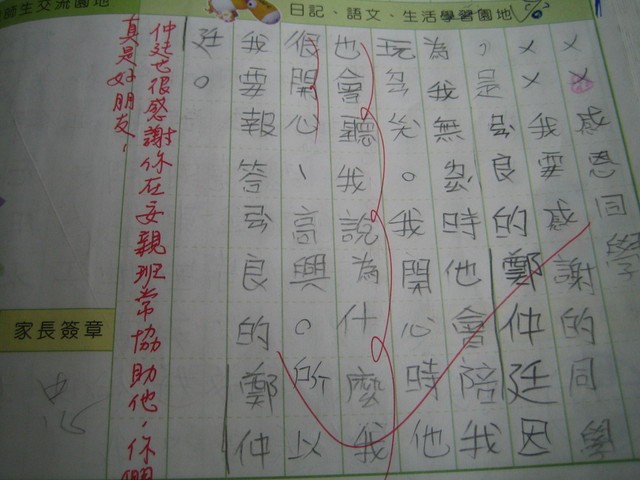 日記、語文、生活學習園地
師生交流園地
××感恩同學
××我要感謝的同學
，是良的鄭仲廷因
為我無時他會陪我
玩。我開心時他
也會聽我說為什麼我
很開心、高興。所以
我要報答良的鄭仲
廷。
仲廷也很感謝你在安親班常協助他，你們
真是好朋友！
家長簽章